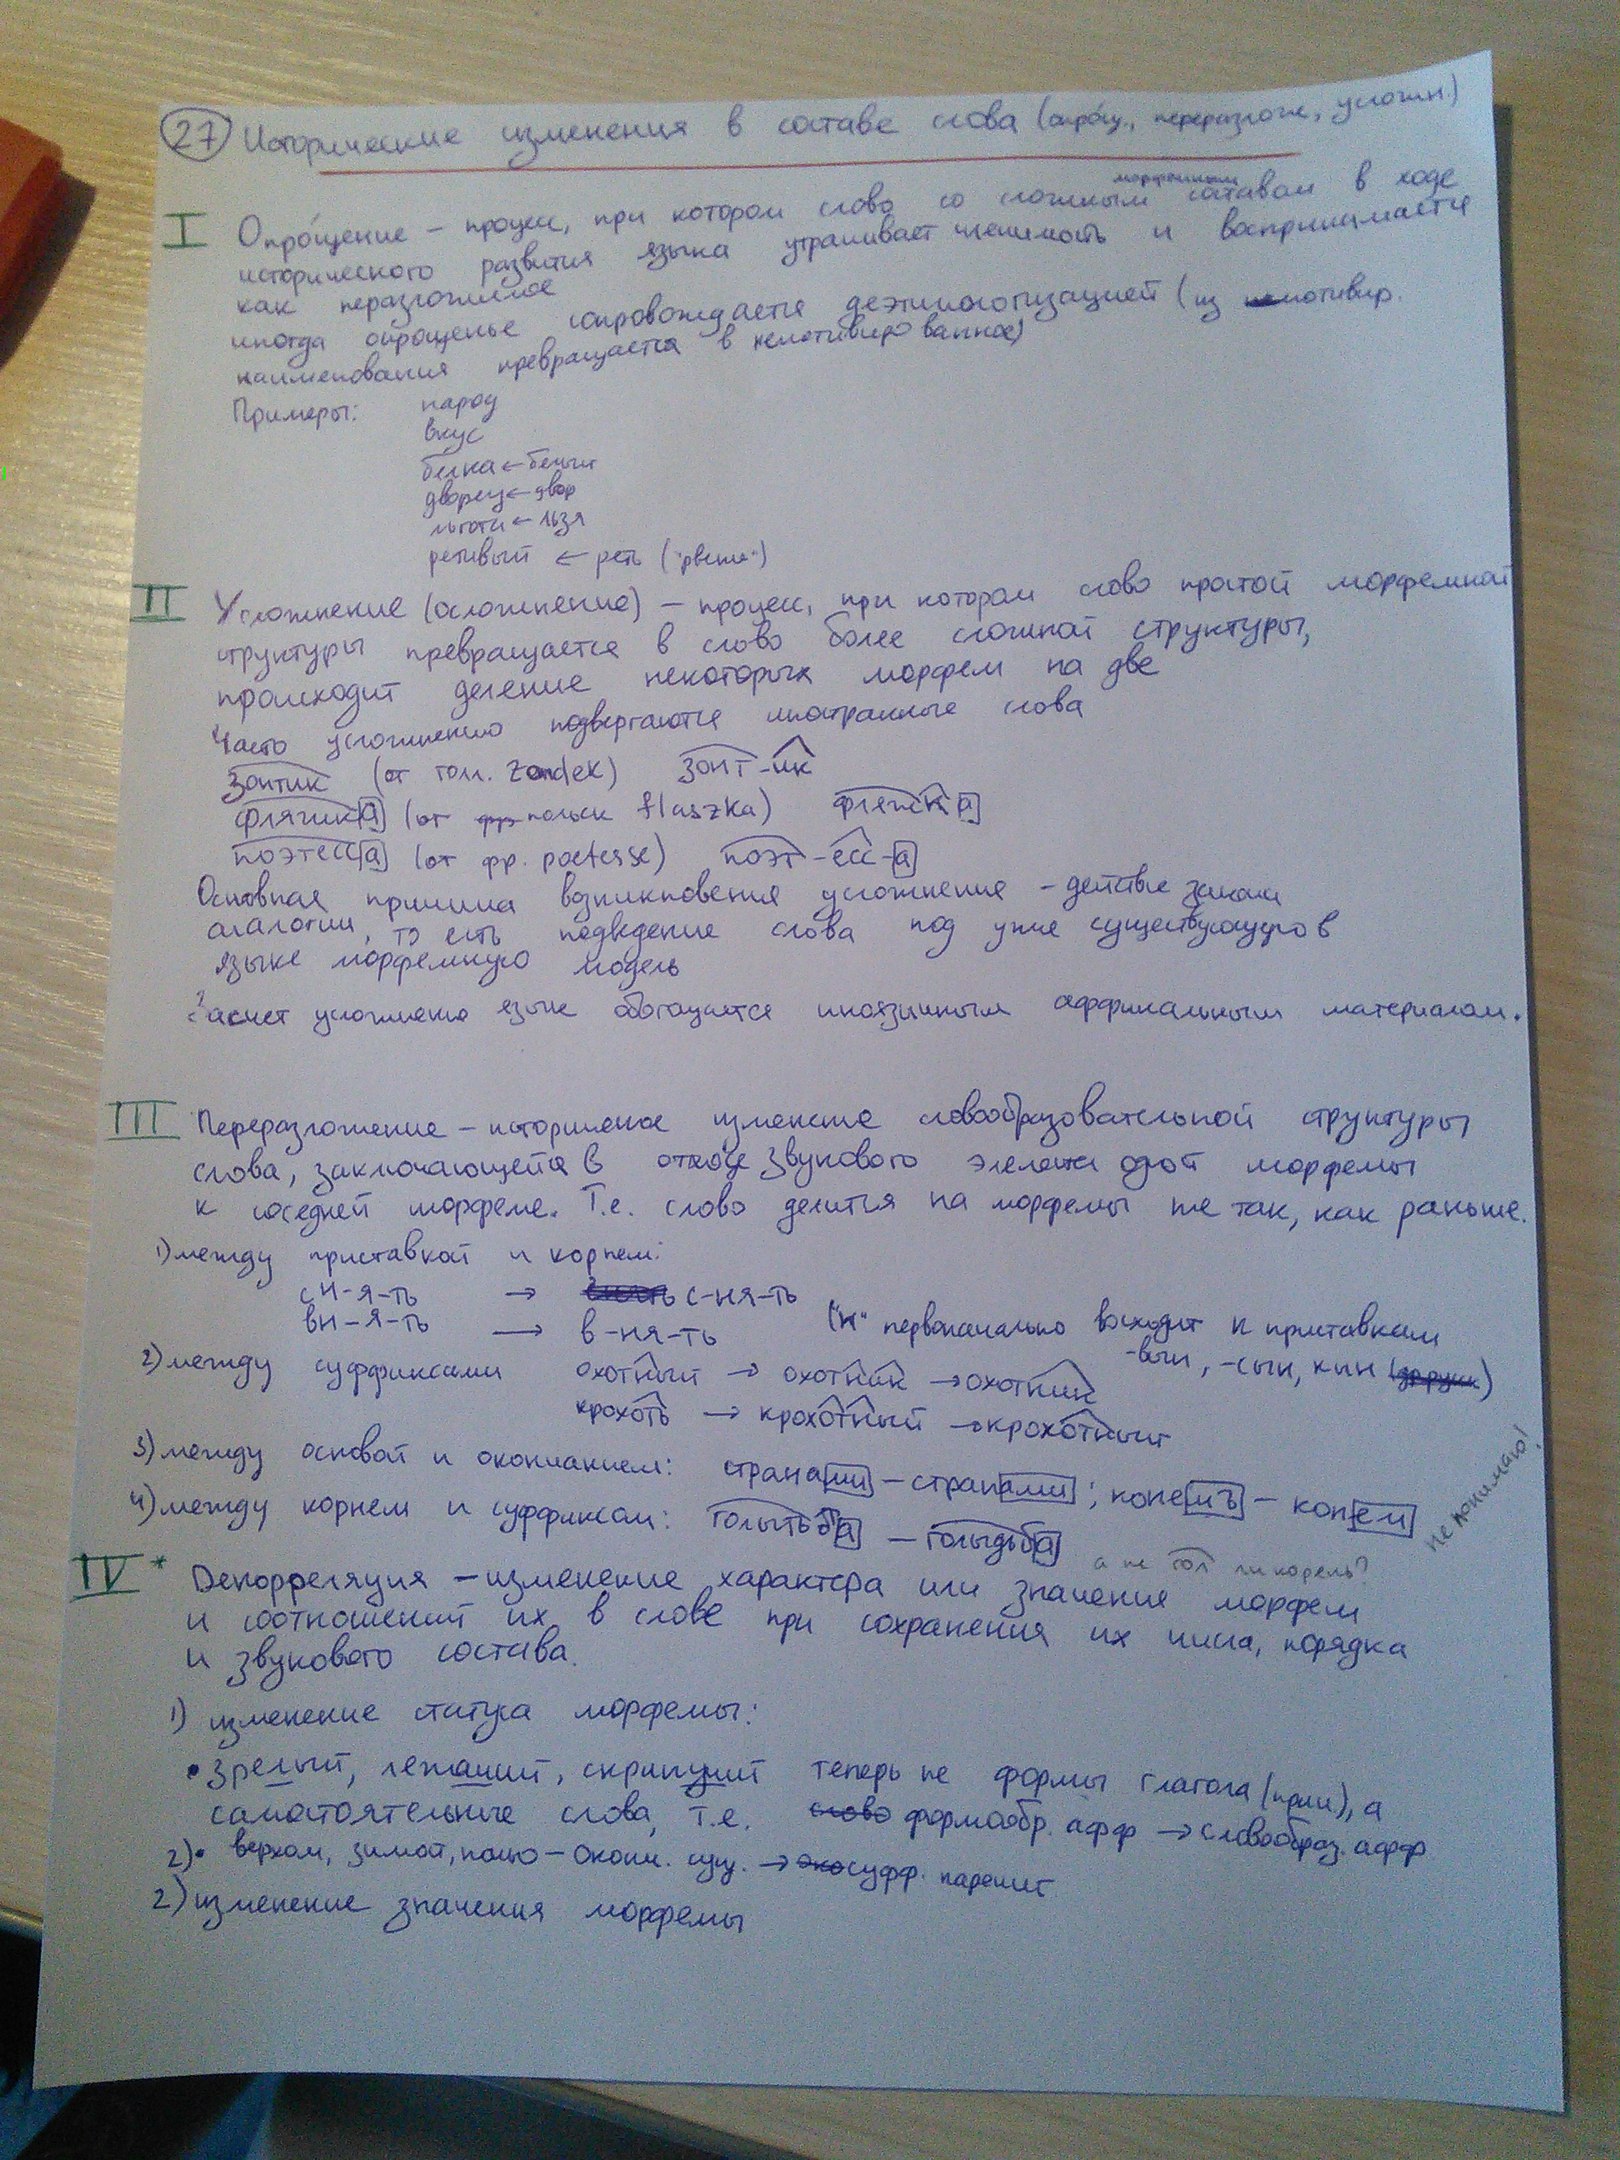 27 Исторические изменения в составе слова (опрощ., переразлож, усложн.)
I Опрощение – процесс, при котором слово со сложным морфемным составом в ходе
исторического развития языка утрачивает членимость и воспринимается
как неразложимое
иногда опрощенье сопровождается деэтимологизацией (из мотивир.
наименования превращается в немотивированное)
Примеры: народ
вкус
белка ← белый
дворец ← двор
льготы ← льзя
ретивый ← реть ("рвение")
II Усложнение (осложнение) – процесс, при котором слово простой морфемной
структуры превращается в слово более сложной структуры,
происходит деление некоторых морфем на две
Часто усложнению подвергаются иностранные слова
зонтик (от голл. Zondek) зонт-ик
фляжка (от польск flaszka) фляжка
поэтесса (от фр. poetesse) поэт-есс-а
Основная причина возникновения усложнение – действие закона
аналогии, то есть подведение слова под уже существующую в
языке морфемную модель
Засчет усложнения язык обогащается иноязычным аффиксальным материалом.
III Переразложение – историческое изменение словообразовательной структуры
слова, заключающейся в отходе звукового элемента одной морфемы
к соседней морфеме. Т.е. слово делится на морфемы не так, как раньше.
1) между приставкой и корнем:
сн-я-ть → с-ня-ть
вн-я-ть → в-ня-ть ("н" первоначально восходит к приставкам
-вън, -сън, кън)
2) между суффиксами охотный → охотник → охотник
крохоть → крохотный → крохотный
3) между основой и окончанием: странами – странами; конемъ – конем
4) между корнем и суффиксом: голытьба – голыдьба
а не гол ли корень?
не понимаю!
IV* Декорреляция – изменение характера или значение морфем
и соотношений их в слове при сохранения их числа, порядка
и звукового состава.
1) изменение статуса морфемы:
• зрелый, лежачий, скрипучий теперь не формы глагола (прич), а
самостоятельные слова, т.е. формообр. афф → словообраз. афф
2) • верхом, зимой, ночью – оконч. сущ. → суфф. наречий
2) изменение значения морфемы